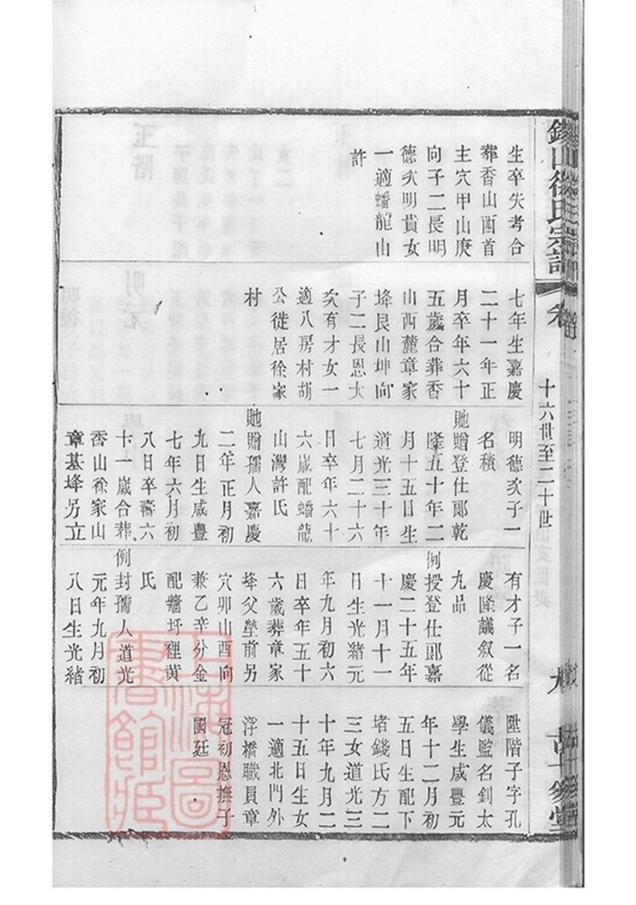 錫山徐氏宗譜
卷
十六世至二十世
生卒失考合
葬香山西首
主穴甲山庚
向子二長明
德次明貴女
一適蟠龍山
許
七年生嘉慶
二十一年正
月卒年六十
五歲合葬香
山西麓章家
埄艮山坤向
子二長恩大
次有才女一
適八房村胡
公徙居徐家
村
明德次子一
名積
貤贈登仕郎乾
隆五十年二
月十五日生
道光三十年
七月二十六
日卒年六十
六歲配蟠龍
山灣許氏
貤贈孺人嘉慶
二年正月初
九日生咸豐
七年六月初
八日卒壽六
十一歲合葬
香山徐家山
章基埄另立
有才子一名
慶隆議叙從
九品
例授登仕郎嘉
慶二十五年
十一月十一
日生光緒元
年九月初六
日卒年五十
六歲葬章家
埄父塋前另
穴卯山酉向
兼乙辛分金
配牆圩裡黄
氏
例封孺人道光
元年九月初
八日生光緒
陞階子字孔
儀監名釗太
學生咸豐元
年十二月初
五日生配下
堵錢氏方二
三女道光三
十年九月二
十五日生女
一適北門外
浮橋職員章
冠初恩撫子
國廷